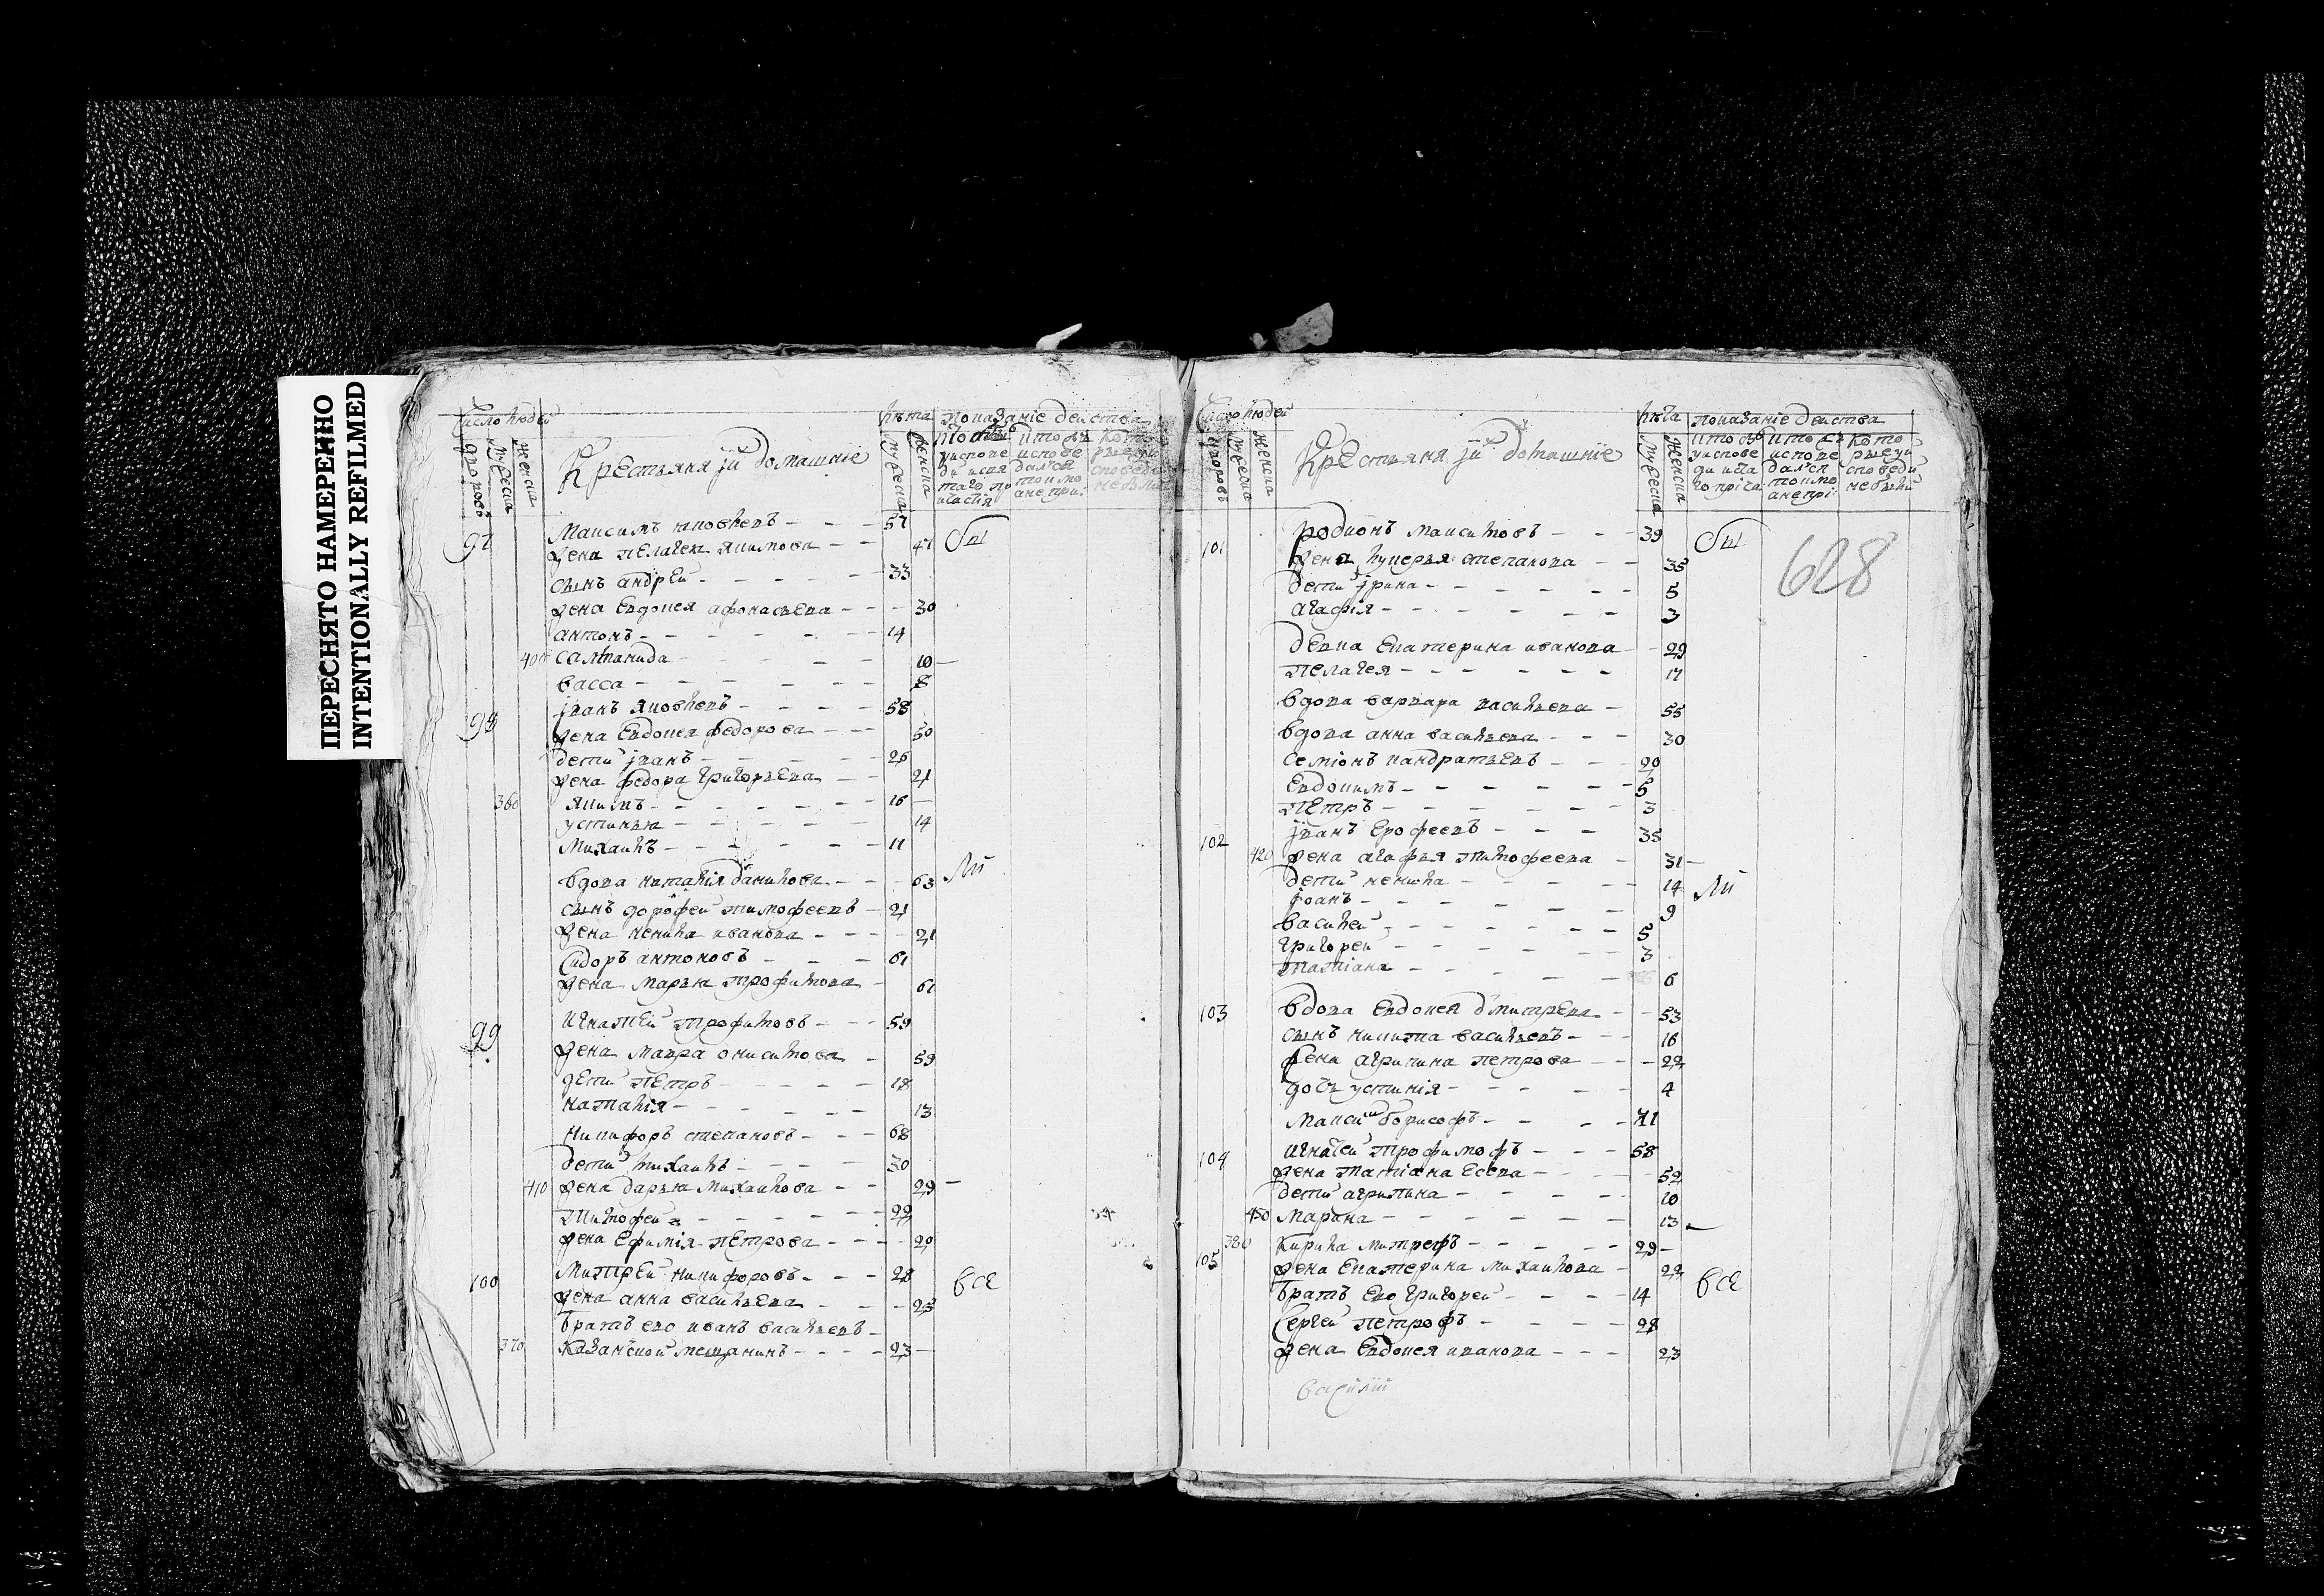 ПЕРЕСНЯТО НАМЕРЕННО
INTENTIONALLY REFILMED
Число людей
дворовъ
мужеска
женска
Крестьяня їи домашние
лѣта
мужеска
женска
показание действа
97 Максимъ яковлевъ - - - 57
жена пелагея якимова - - 47
сынъ андрей - - - - - - 33
жена Евдокея афонасьева - - - 30
антонъ - - - - - - 14
400 саламанида - - - - - 10 -
васса - - - - - - 8
98 їванъ яковлевъ - - - - 58
жена Евдокея федорова - - - 50
дети їванъ - - - - 26
жена федора григорьева - - 21
360 якимъ - - - - - - - 16 -
устинья - - - - - 14
Михаилъ - - - - - - 11
вдова наталия данилова - - - 63
сынъ дорофей тимофеевъ - 21
жена ненила иванова - - - 21
Сидоръ антоновъ - - - 61
жена Марья трофимова - 61
99 игнатей трофимовъ - - - 59
жена мавра онисимова - 59
дети петръ - - - - - 18
наталия - - - - - - 13
никифоръ степановъ - - - 68
дети михаилъ - - - - 30
410 жена дарья михаилова - - 29 -
тимофей - - - - - - 22
жена Ефимия петрова - - - 20
100 Митрей никифоровъ - - - 28
жена анна васильева - - - 25
братъ ево иванъ васильевъ -
370 казанской мещанинъ - - - - 23 -
бы
ли
все
Число людей
дворовъ
мужеска
женска
Крестьяня їи домашние
лѣта
мужеска
женска
показание действа
628
101 родионъ максимовъ - - - 39
жена лукерья степанова - - 35
дети їрина - - - - - - 5
агафия - - - - - - 3
девка Екатерина иванова - - 29
пелагея - - - - - - 17
вдова варвара васильева - 55
вдова анна васильева - - - 30
семионъ кандратьевъ - - - 20
Евдокимъ - - - - - - 5
петръ - - - - - - - 3
102 їванъ Ерофеевъ - - - 35
420 жена агафья тимофеева - 31 -
дети ненила - - - - - 14
їоанъ - - - - - - 9
василей - - - - - - 5
григорей - - - - - - 3
татиана - - - - - - 6
103 вдова Евдокея дмитрева - - 53
сынъ никита васильевъ - - 16
жена агрипина петрова - - - 22
дочь устиния - - - - - 4
Максим борисофъ - - - - 71
104 игнатей трофимофъ - - - 58
жена татиана Есева - - - - 52
дети агрипина - - - - - 10
430 Марина - - - - - - 13 -
380 кирила митрефъ - - - - - 29 -
105 жена Екатерина михаилова - 22
братъ Ево григорей - - - - 14
Сергей петрофъ - - - - 28
жена Евдокея иванова - - - 23
василий
бы
ли
все